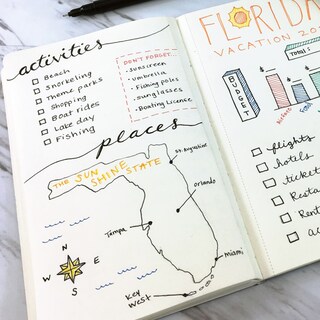 activities
Beach
Snorkeling
Theme parks
Shopping
Boat rides
Lake day
Fishing
DON'T FORGET...
- Sunscreen
- umbrella
- Fishing poles
- Sunglasses
- Boating License
places
THE SUN
SHINE
STATE
St. Augustine
Orlando
Tampa
Miami
Key
West
N
W
E
S
FLORIDA
VACATION
BUDGET
flights
hotels